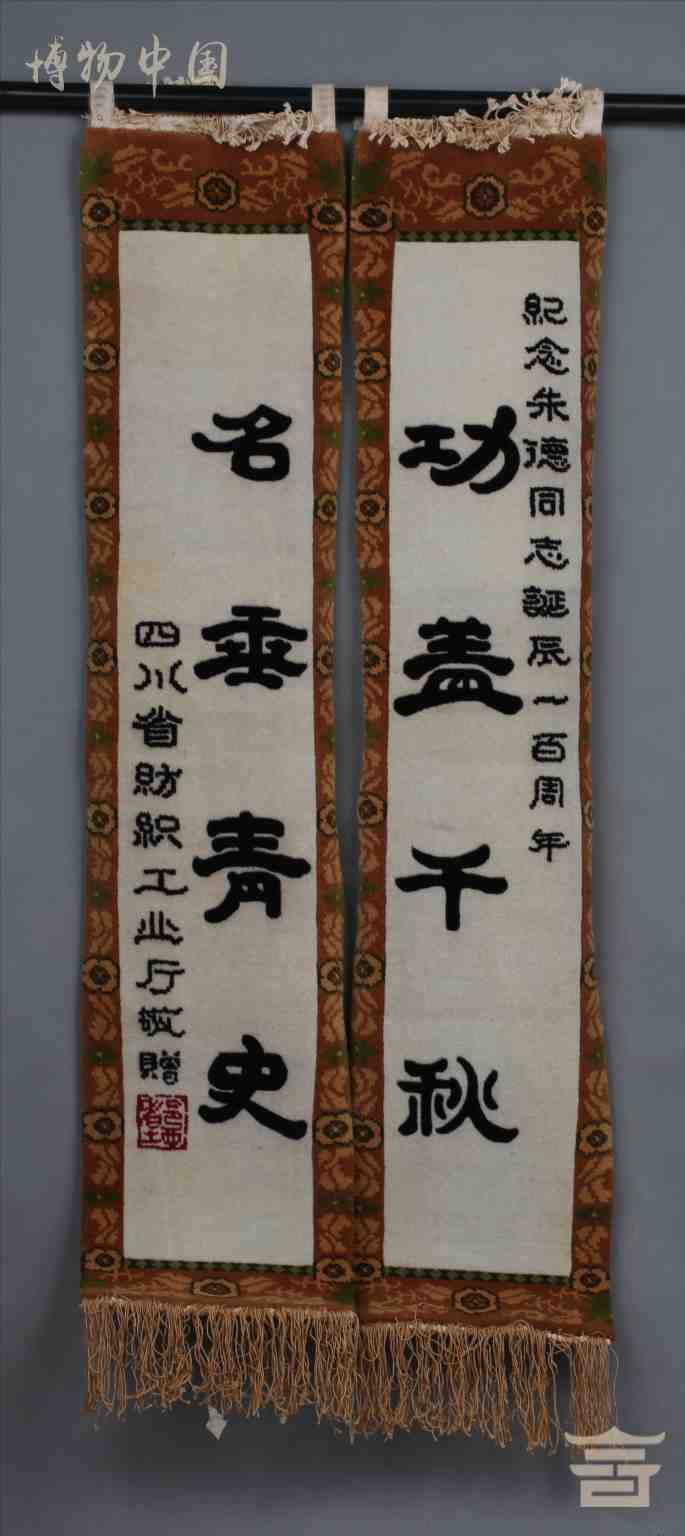 博物中国
紀念朱德同志誕辰一百周年
功盖千秋
名垂青史
四川省紡織工业厅敬贈